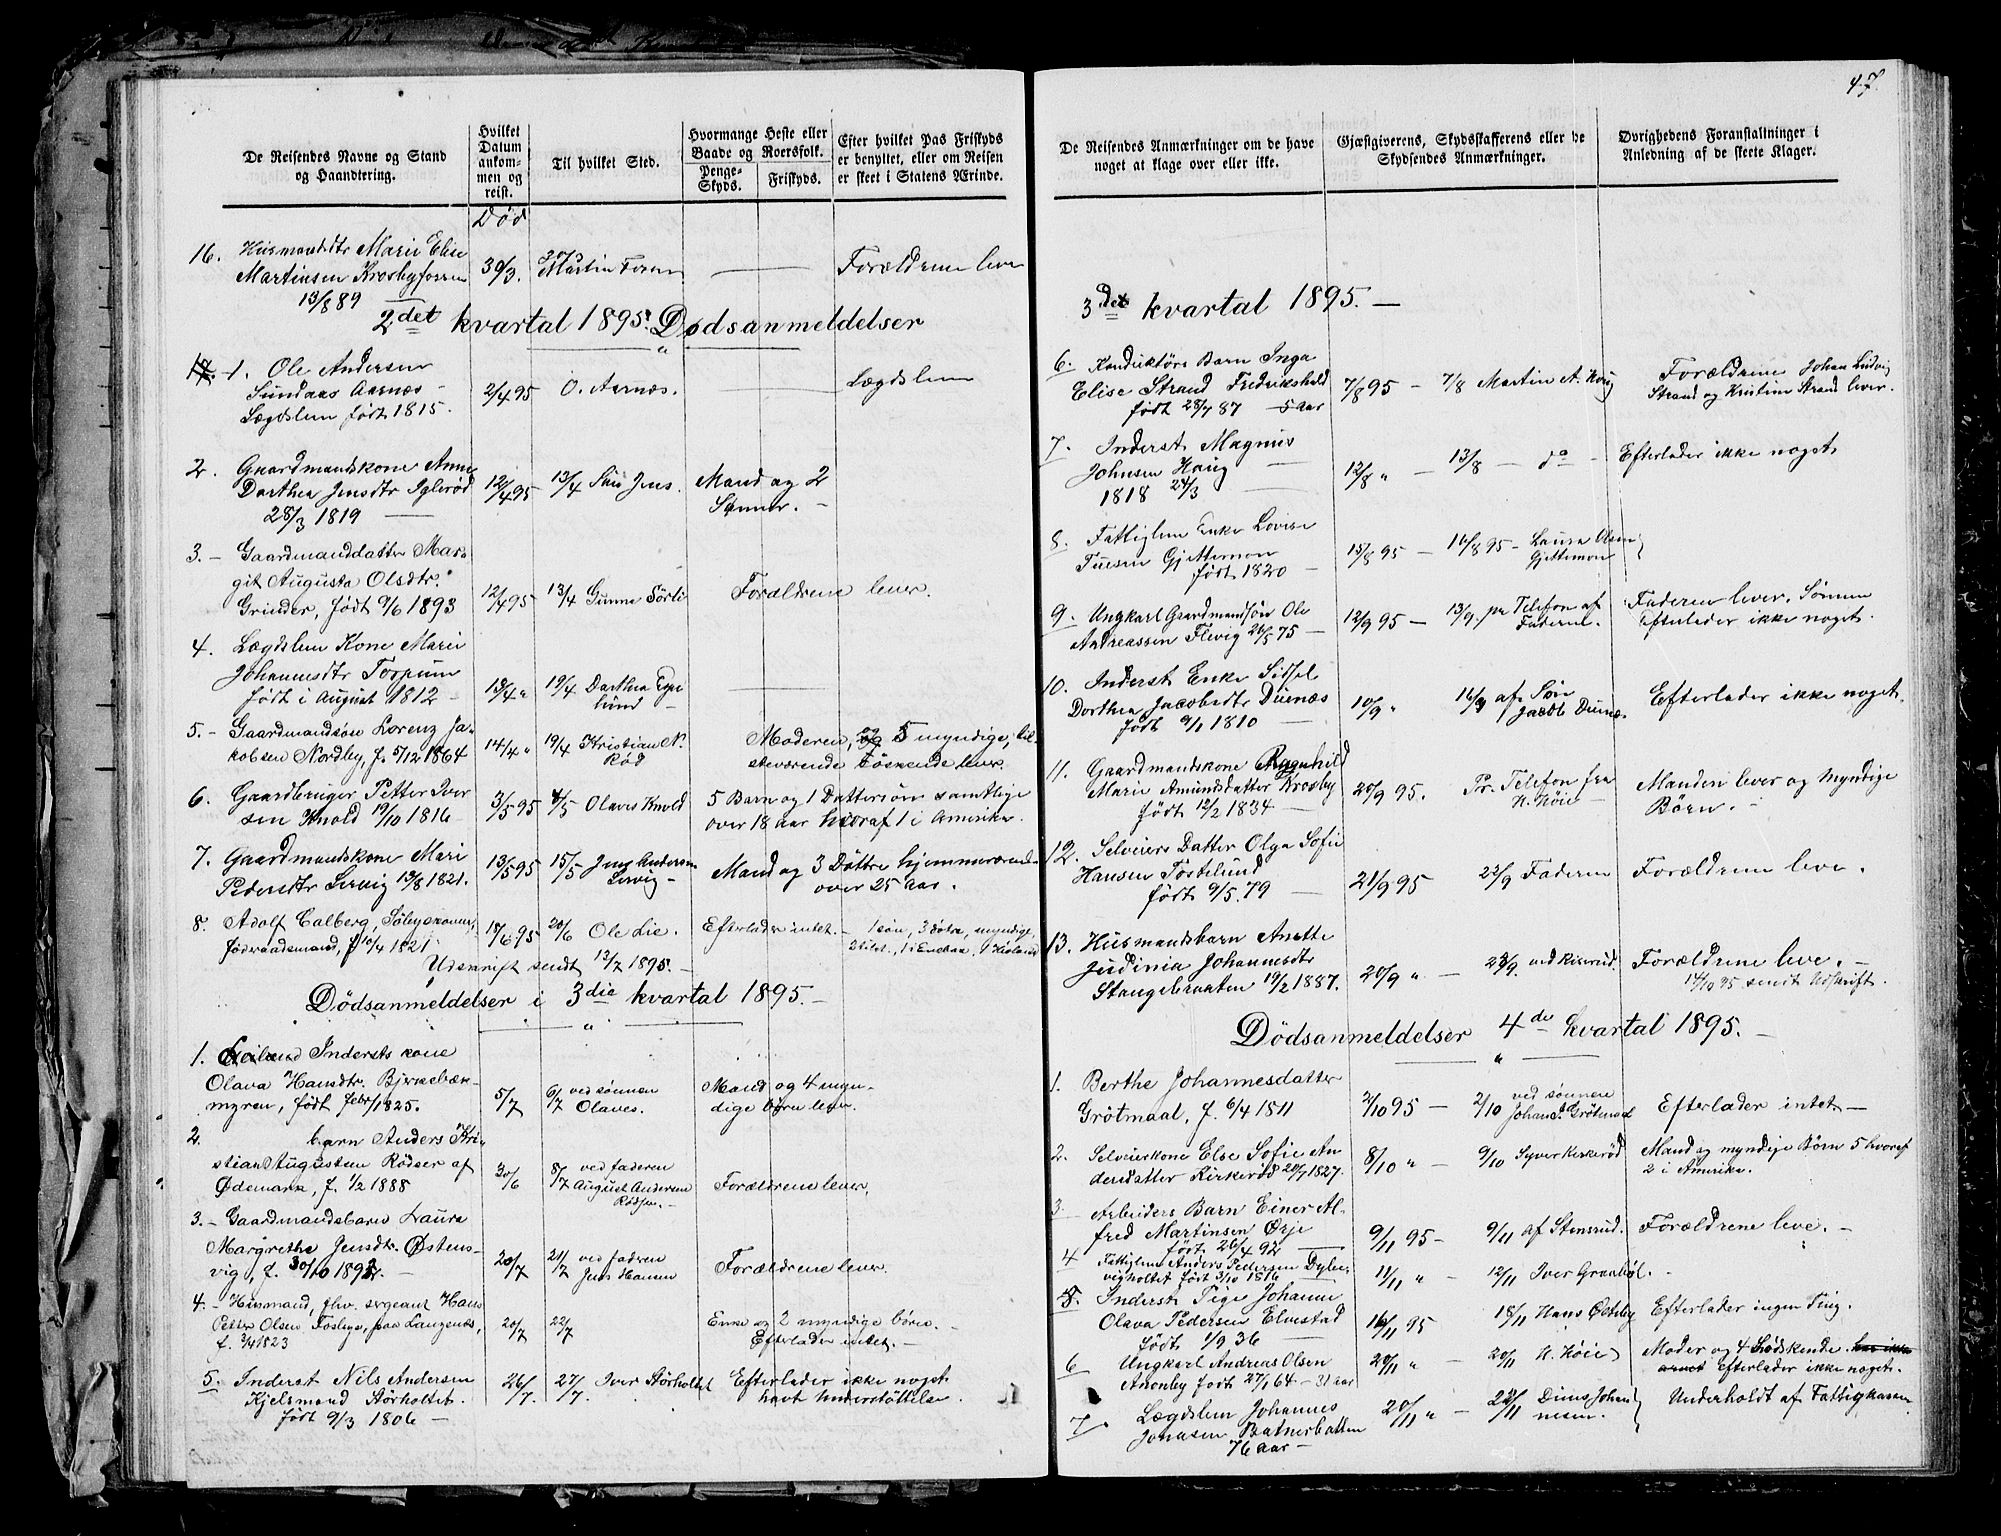 47.
De Reisendes Navne og Stand
og Haandtering.
Hvilket
Datum
ankom-
men og
reist.
Til hvilket Sted.
Hvormange Heste eller
Baade og Roersfolk.
Penge-
Skyds.
Friskyds.
Efter hvilket Pas Friskyds
er benyttet, eller om Reisen
er skeet i Statens Ærinde.
Død
16. Husmandsdtr Marie Elise
Martinsen Krosby
13/8 89
30/3.
30/3
Martin
Forældrene lever
2det kvartal 1895. Dødsanmeldelser
17. 1. Ole Andersen
Sundaas Aarnæs
Lægdslem født 1815.
2/4 95
O. Aarnæs.
Lægdslem
2. Gaardmandskone Anne
Dorthea Jensdtr Iglerød
28/3 1819
12/4 95
13/4 Jens.
Mand og 2
Sønner. –
3. – Gaardmanddatter Mar-
git Augusta Olsdtr.
Grinder, født 9/6 1893
12/4 95
13/4 Gunne Sörli
Forældrene lever.
4. Lægdslem Kone Marie
Johannesdtr Torpum
født i August 1812 –
13/4 "
19/4 Dorthea
5. – Gaardmandsøn Lorenz Ja-
kobsen Nordby, f. 5/12 1864
14/4 "
19/4 Kristian N.
Rød
Moderen, og 5 myndige, til-
steværende söskende lever.
6. Gaardbruger Petter Iver
sen Knold 19/10 1816 –
3/5 95
4/5 Olaves Knold
5 Børn og 1 Dattersøn samtlige
over 18 aar hvoraf 1 i Amerika.
7. Gaardmandskone Mari
Pedersdtr Lervig 13/8 1821.
13/5 95
15/5 Jens Andersen
Lervig –
Mand og 3 Döttre hjemmeværende
over 25 aar.
8. Adolf Calberg,
föderaadsmand, f. 10/4 1821
18/6 95
20/6 Ole Lie.
Efterlader intet. – 1 søn, 3 døtre, myndige,
2 tilst., 1 i
Udskrift sendt 12/7 1895. –
Dödsanmeldelser i 3die kvartal 1895. –
1. Inderst kone
Olava Hansdtr. Bjerkebæk-
myren, født febr/1825.
5/7
6/7 ved sønnen
Olaves.
Mand og 4 myn-
dige børn lever.
2. barn Anders Kri-
stian Augustsen Rødser af
Ødemark, f. 1/2 1888
30/6
8/7 ved faderen
August Andersen
Rødsen. –
Forældrene lever.
3. – Gaardmandsbarn Laura
Margrethe Jensdtr. Østens-
vig, f. 30/10 1892. –
20/7
21/7 ved faderen
Jens Hansen
Forældrene lever.
4. – Husmand, fhv. sergeant Hans
Petter Olsen Fosbye, paa Langenæs,
f. 3/4 1823
20/7
22/7
Enke og 2 myndige børn. –
Efterlader intet. –
5. Inderst Nils Andersen
Kjelsmond Störholtet.
født 9/3 1806 –
26/7.
27/7. Iver Störholtet
Efterlader ikke noget
havt Understöttelse.
De Reisendes Anmærkninger om de have
noget at klage over eller ikke.
Gjæstgiverens, Skydsskafferens eller de
Skydsendes Anmærkninger.
Øvrighedens Foranstaltninger i
Anledning af de skeete Klager.
3det kvartal 1895. –
6. Konduktörs Barn Inga
Elise Strand Fredrikshald
født 28/7 87
7/8 95 –
7/8 Martin A. Haug
Forældrene Johan Ludvig
Strand og Kristine Strand lever.
7. Inderst Magnus
Johnsen Haug
1818 24/3
12/8 "
13/8 – do –
Efterlader ikke noget
8. Fattiglem Enke Lovise
Tuesen Gjettemon
født 1820
15/8 95 –
16/8 95 – Laura Olsen
Gjettemon
9. Ungkarl Gaardmandsøn Ole
Andreassen Flevig 21/5 75 –
12/9 95 –
13/9. pr Telefon af
Faderen.
Faderen lever. Sønnen
efterlader ikke noget.
10. Inderst Enke Sidsel
Dorthea Jacobsdtr Duenæs
født 9/1 1810
10/9 "
16/9 af Søn
Jacob Duenæs
Efterlader ikke noget.
11. Gaardmandskone Ragnhild
Marie Amundsdatter Krosby
født 12/2 1834 –
20/9 95.
Pr. Telefon fra
H. Höie –
Manden lever og Myndige
Börn. –
12. Selveiers Datter Olga Sofie
Hansen Töstelund
født 9/5. 79
21/9 95
22/9 Faderen
Forældrene leve.
13. Husmandsbarn Anette
Judinia Johannesdtr
Stangebraaten 19/2 1887.
20/9 " –
23/9. ved Riserud.
Forældrene leve. –
14/10 95 sendt Udskrift.
Dödsanmeldelser 4de kvartal 1895. –
1. Berthe Johannesdatter
Grötmaal, f. 6/4 1811
2/10 95 –
2/10 ved sønnen
Johans. Grötmaal
Efterlader intet –
2. Selveierkone Else Sofie An-
dersdatter Kirkerød 20/7 1827.
8/10 " –
9/10 Syver Kirkerød
Mand og myndige Börn 5 hvoraf
2 i Amerika.
3. Arbeiders Barn Einer Al-
fred Martinsen Ørje
født 26/4 92
9/11 95 –
9/11 af Stensrud.
Forældrene leve. –
4 Fattiglem Anders Pedersen Dyber-
vigholtet født 3/10 1816
11/11 " –
12/11 Iver Granböl.
5. Inderst Pige Johanne
Olava Pedersen Elvestad
født 1/9 36
16/11 95
18/11 Hans Østeby
Efterlader ingen Ting.
6 Ungkarl Andreas Olsen
Aronby født 27/1 64 – 31 aar
20/11 " –
20/11 H. Höie
Moder og 4 Södskende har ikke
arvet efterlader ikke noget.
7 Lægdslem Johannes
Jonasen Batnerbatten
76 aar –
20/11 " –
22/11 Dines Johan
nesen.
Underholdt af Fattigkassen